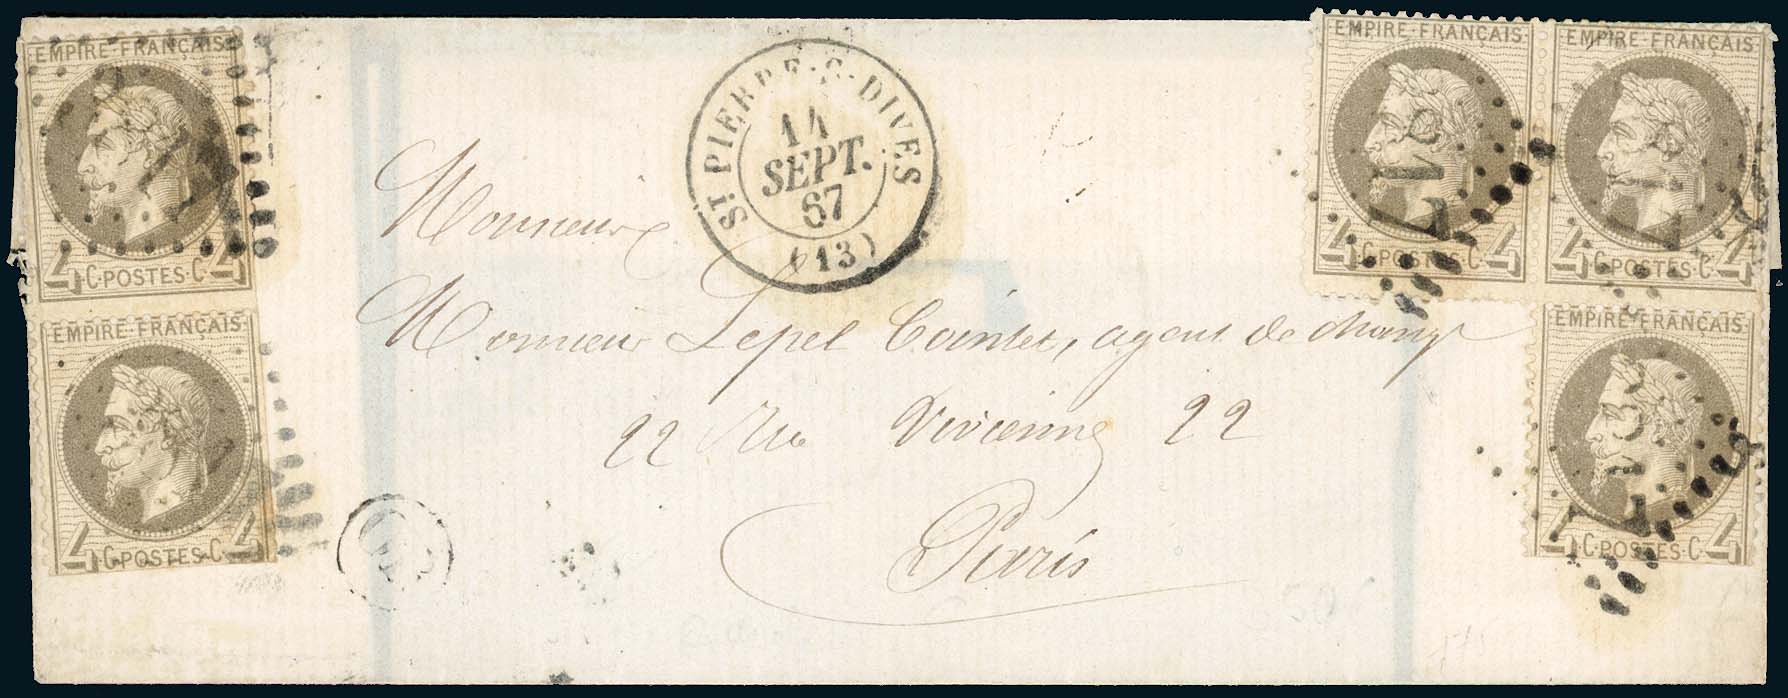 EMPIRE·FRANÇAIS
4 C·POSTES·C 4
EMPIRE·FRANÇAIS
4 C·POSTES·C 4
ST PIERRE·S·DIVES
14
SEPT.
67
(13)
EMPIRE·FRANÇAIS
4 C·POSTES·C 4
EMPIRE·FRANÇAIS
4 C·POSTES·C 4
EMPIRE·FRANÇAIS
4 C·POSTES·C 4
Monsieur
Monsieur Lepel Cointet, agent de change
22 Rue Vivienne 22
Paris